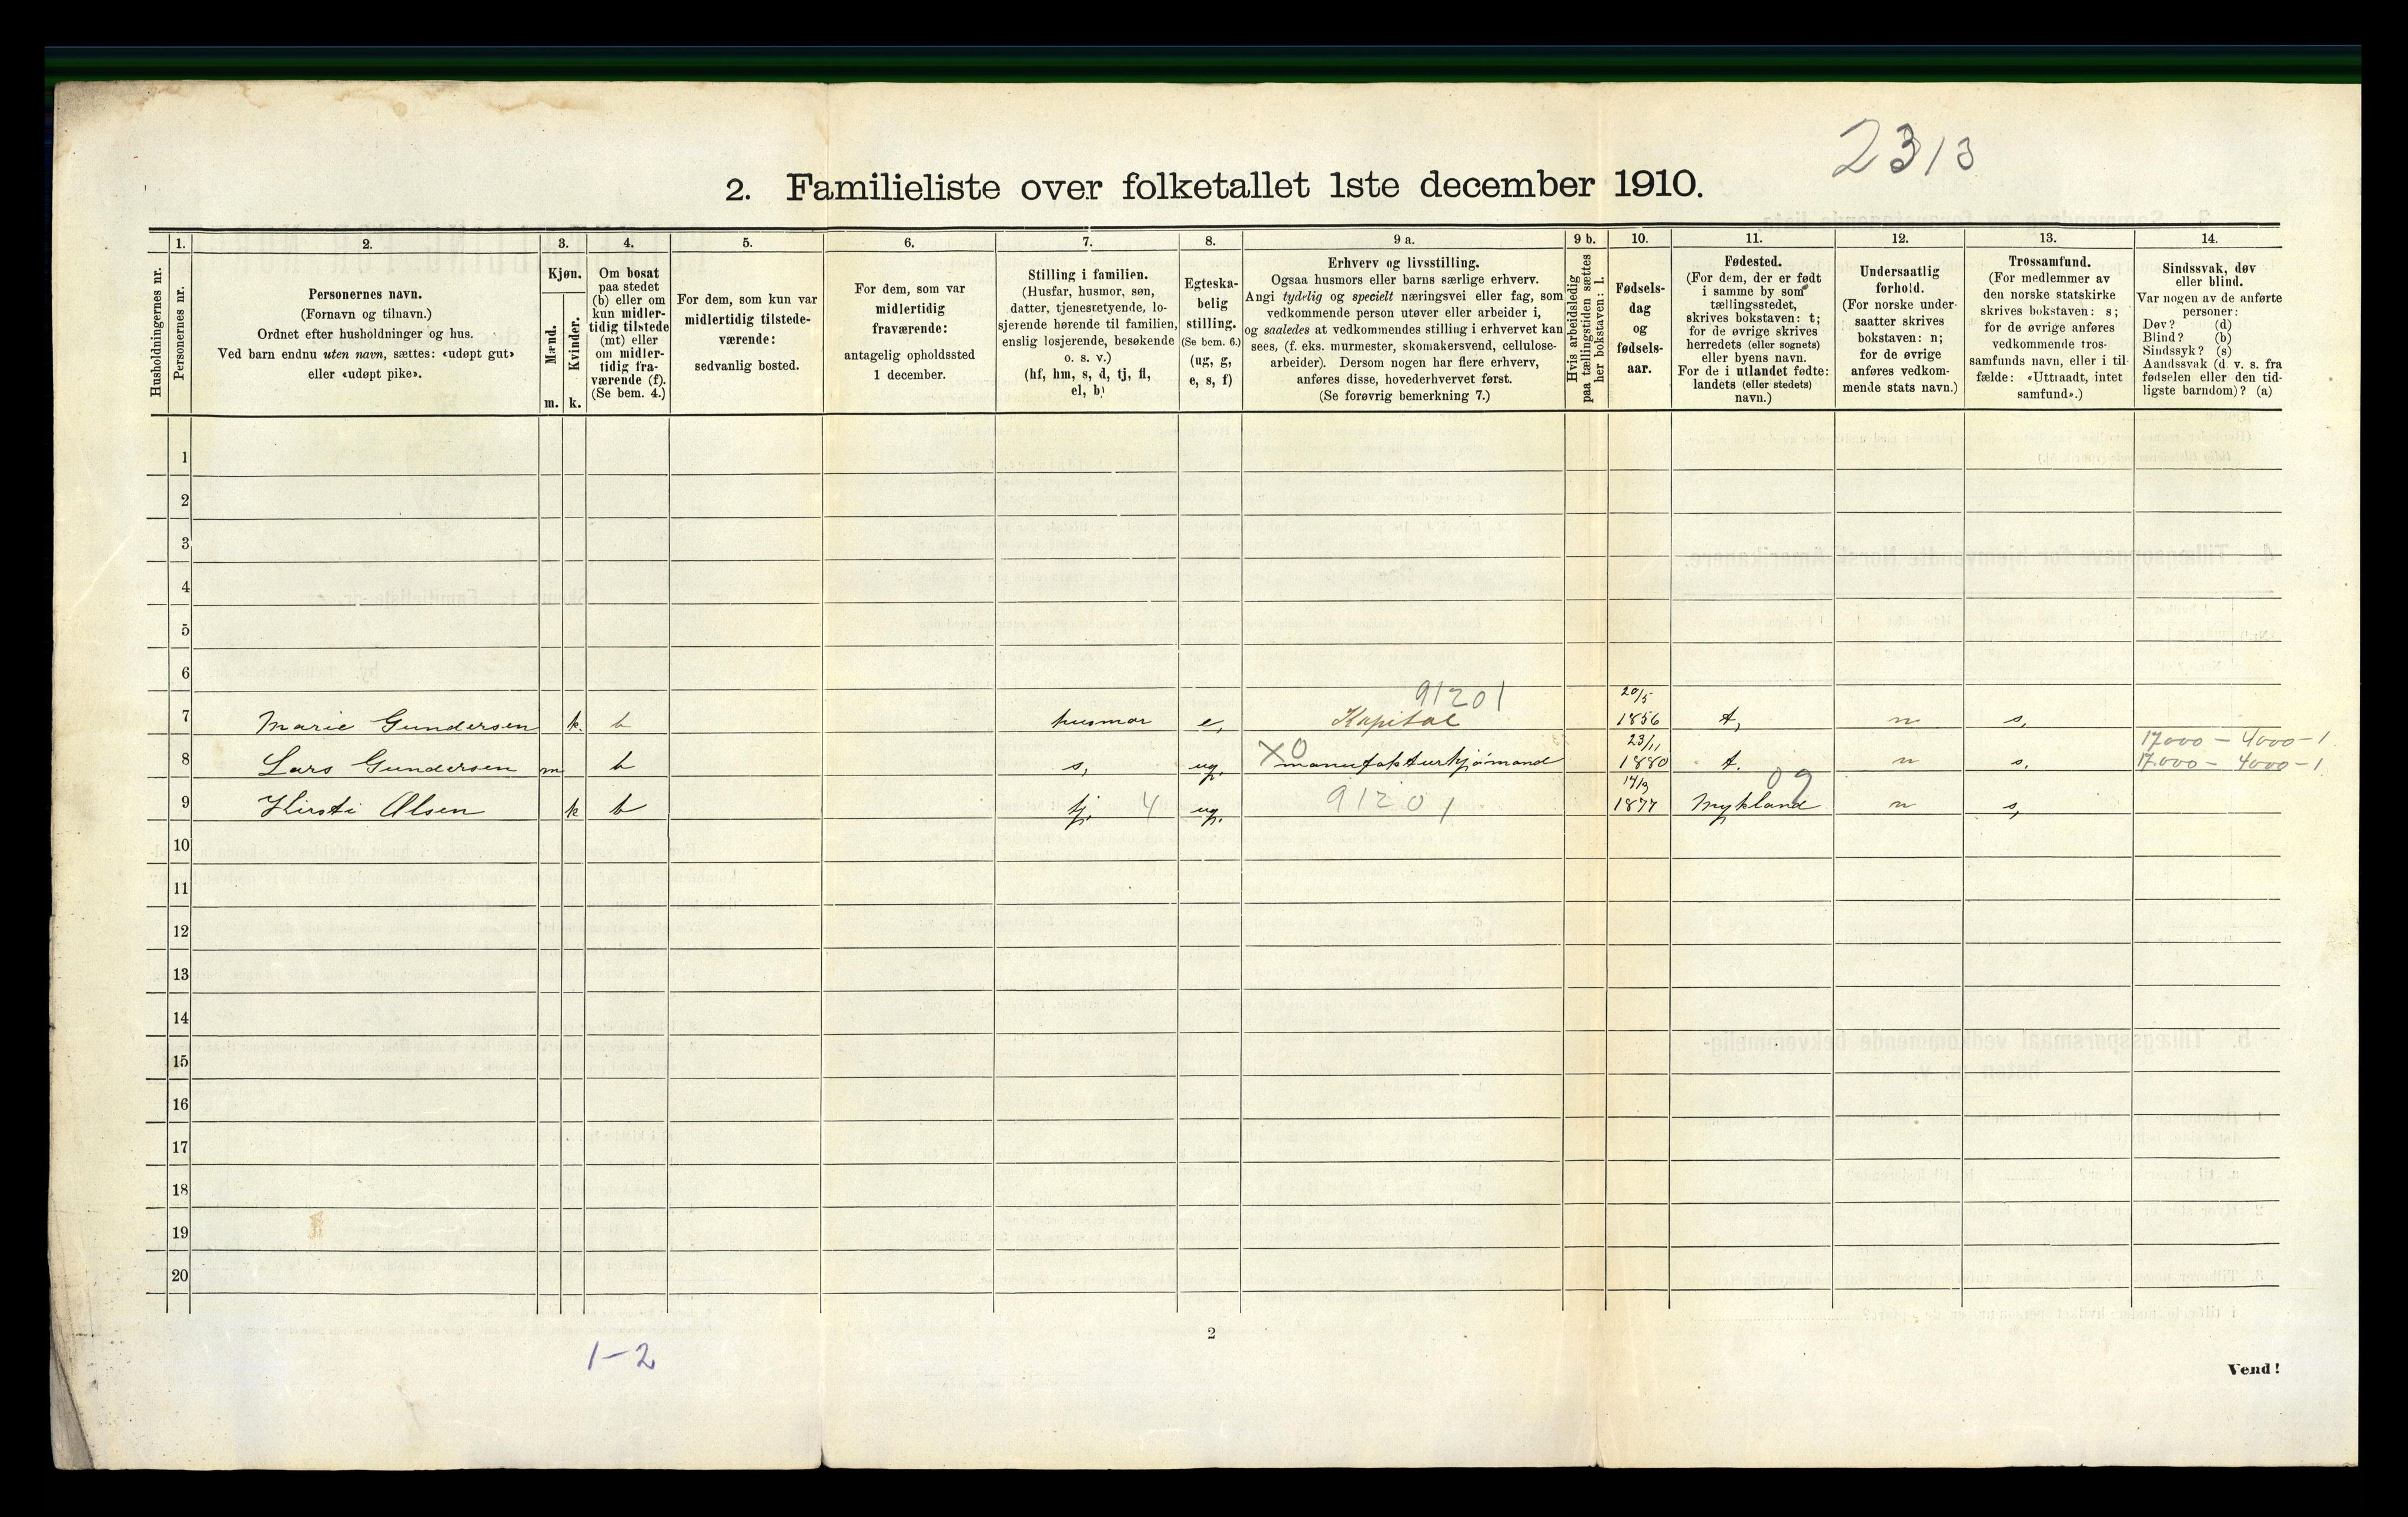 2313
2. Familieliste over folketallet 1ste december 1910.
Husholdningernes nr.
1.
Personernes nr.
2.
Personernes navn.
(Fornavn og tilnavn.)
Ordnet efter husholdninger og hus.
Ved barn endnu uten navn, sættes: «udøpt gut»
eller «udøpt pike».
3.
Kjøn.
Mænd.
Kvinder.
m. k.
4.
Om bosat
paa stedet
(b) eller om
kun midler-
tidig tilstede
(mt) eller
om midler-
tidig fra-
værende (f).
(Se bem. 4.)
5.
For dem, som kun var
midlertidig tilstede-
værende:
sedvanlig bosted.
6.
For dem, som var
midlertidig
fraværende:
antagelig opholdssted
1 december.
7.
Stilling i familien.
(Husfar, husmor, søn,
datter, tjenestetyende, lo-
sjerende hørende til familien,
enslig losjerende, besøkende
o. s. v.)
(hf, hm, s, d, tj, fl,
el, b)
8.
Egteska-
belig
stilling.
(Se bem. 6.)
(ug, g,
e, s, f)
9 a.
Erhverv og livsstilling.
Ogsaa husmors eller barns særlige erhverv.
Angi tydelig og specielt næringsvei eller fag, som
vedkommende person utøver eller arbeider i,
og saaledes at vedkommendes stilling i erhvervet kan
sees, (f. eks. murmester, skomakersvend, cellulose-
arbeider). Dersom nogen har flere erhverv,
anføres disse, hovederhvervet først.
(Se forøvrig bemerkning 7.)
9 b.
Hvis arbeidsledig
paa tællingstiden sættes
her bokstaven: l.
10.
Fødsels-
dag
og
fødsels-
aar.
11.
Fødested.
(For dem, der er født
i samme by som
tællingsstedet,
skrives bokstaven: t;
for de øvrige skrives
herredets (eller sognets)
eller byens navn.
For de i utlandet fødte:
landets (eller stedets)
navn.)
12.
Undersaatlig
forhold.
(For norske under-
saatter skrives
bokstaven: n;
for de øvrige
anføres vedkom-
mende stats navn.)
13.
Trossamfund.
(For medlemmer av
den norske statskirke
skrives bokstaven: s;
for de øvrige anføres
vedkommende tros-
samfunds navn, eller i til-
fælde: «Uttraadt, intet
samfund».)
14.
Sindssvak, døv
eller blind.
Var nogen av de anførte
personer:
Døv? (d)
Blind? (b)
Sindssyk? (s)
Aandssvak (d. v. s. fra
fødselen eller den tid-
ligste barndom)? (a)
1
2
3
4
5
6
91201 20/5
7 Marie Gundersen k. b husmor e, Kapital 1856 t, n s,
23/11 17000 - 4000 - 1
8 Lars Gundersen m b s, ug. XO manufakturhjømand 1880 t. n s, 17000 - 4000 - 1
14/9 09
9 Kirsti Olsen k b tj. 4 ug. 91201 1877 Mykland n s,
10
11
12
13
14
15
16
17
18
19
20
2
1-2
Vend!